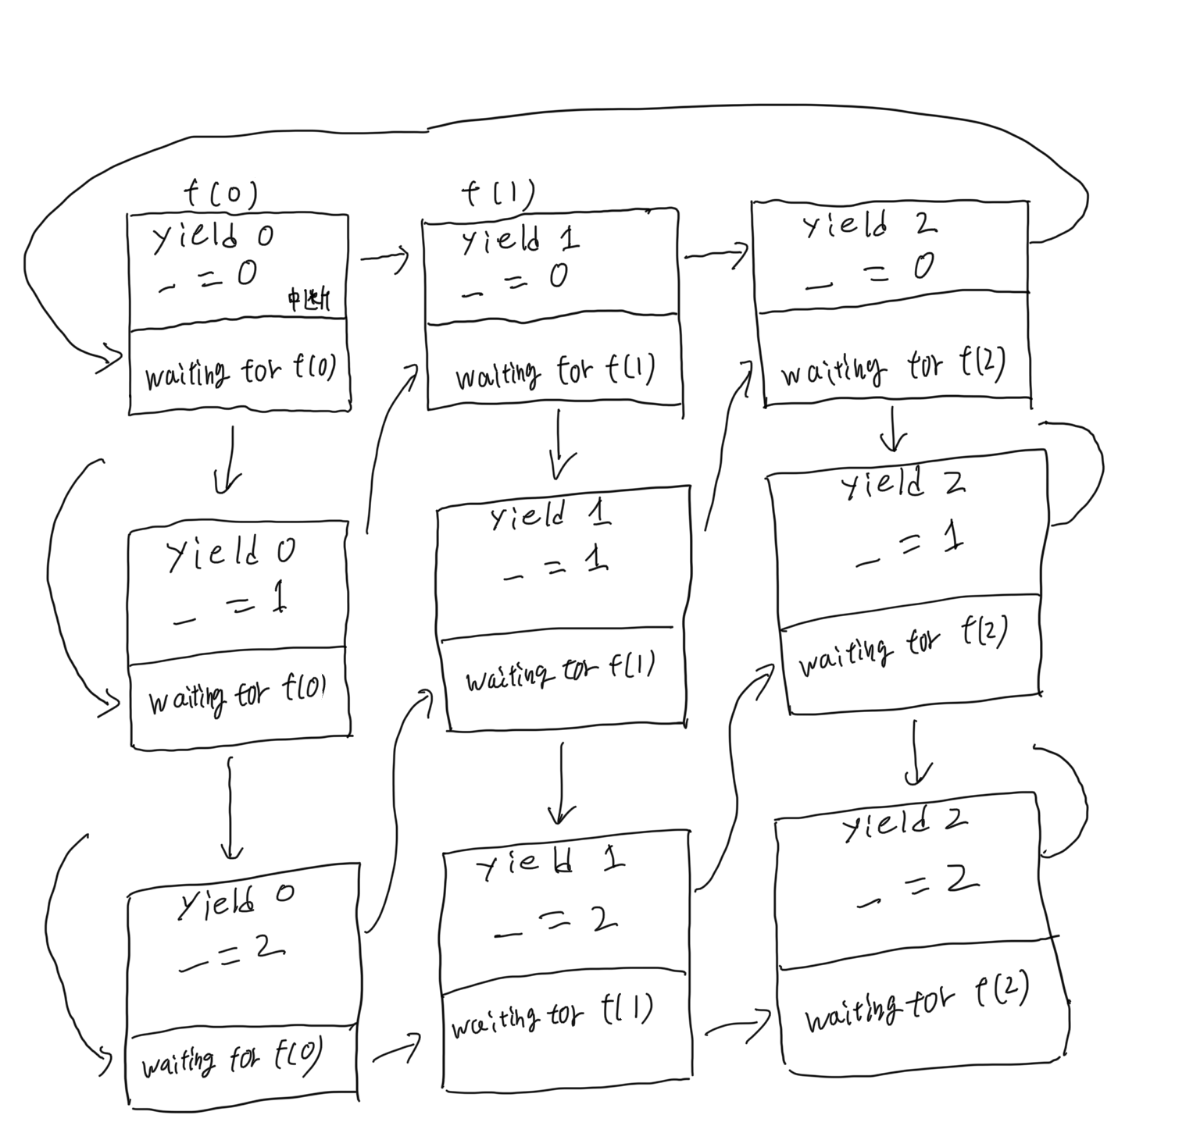 f(0)
yield 0
_ = 0
中断
waiting for f(0)
f(1)
yield 1
_ = 0
waiting for f(1)
yield 2
_ = 0
waiting for f(2)
yield 0
_ = 1
waiting for f(0)
yield 1
_ = 1
waiting for f(1)
yield 2
_ = 1
waiting for f(2)
yield 0
_ = 2
waiting for f(0)
yield 1
_ = 2
waiting for f(1)
yield 2
_ = 2
waiting for f(2)